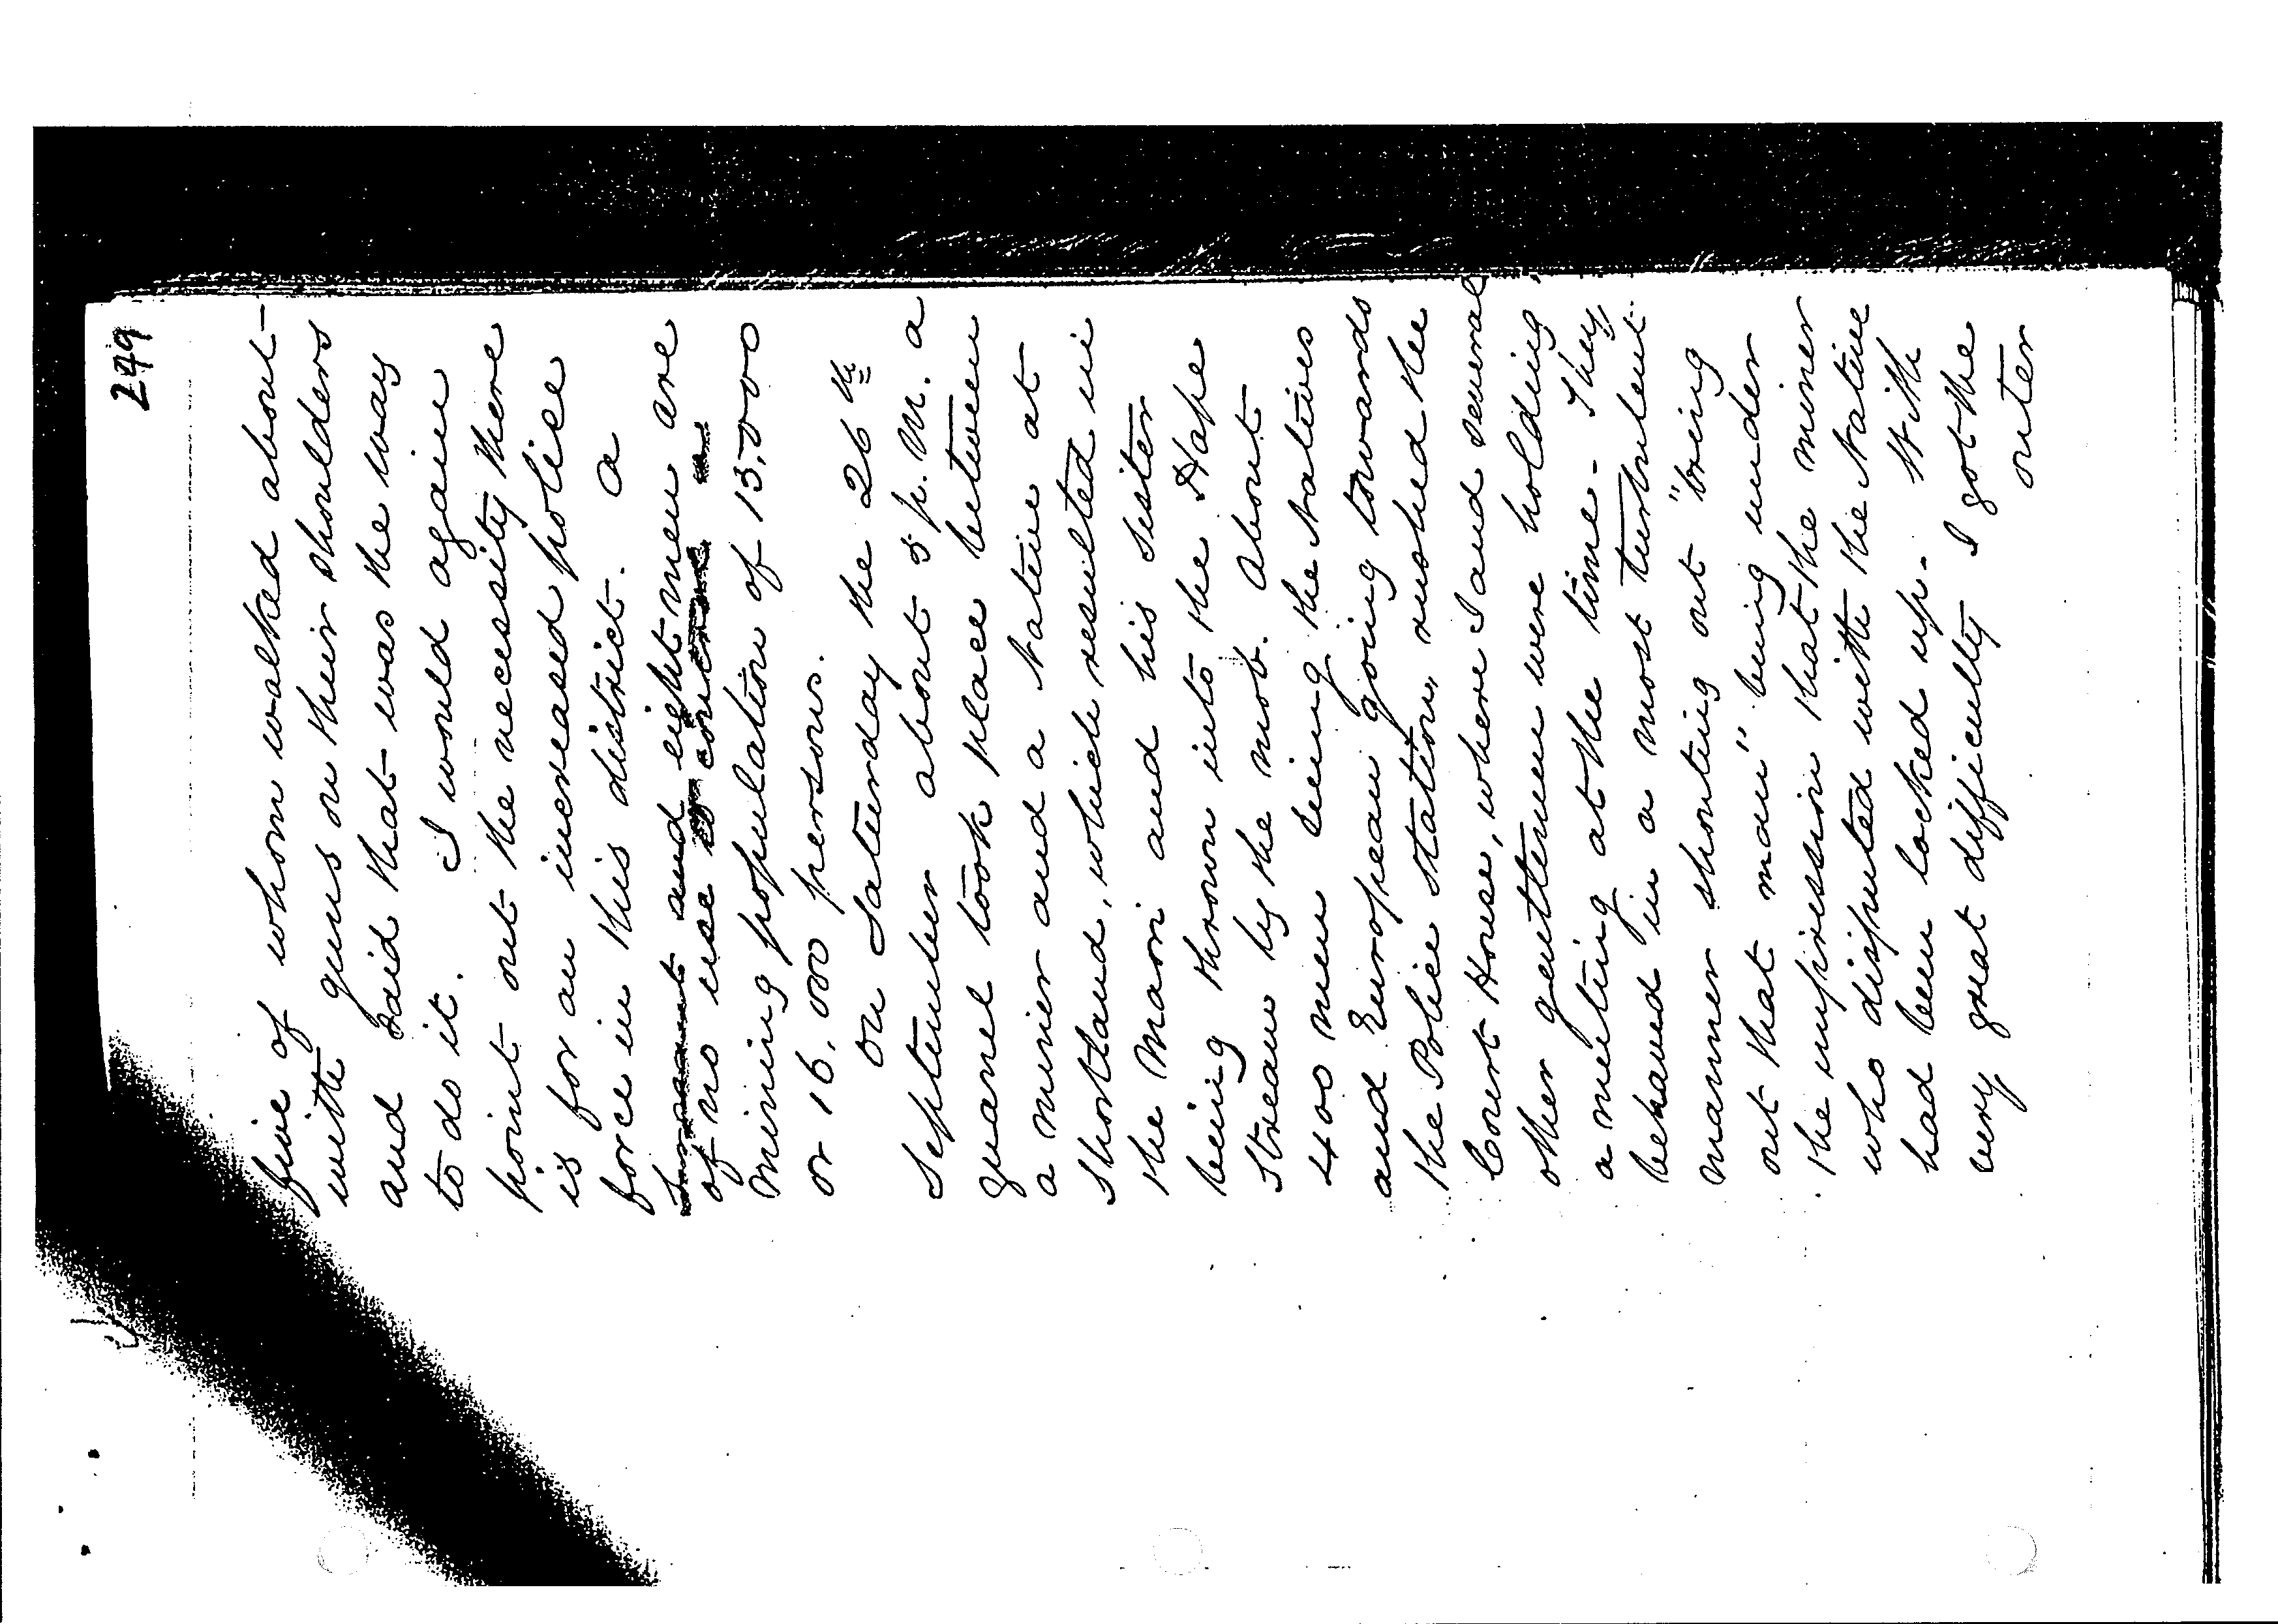 249
five of whom walked about
with guns on their shoulders
and said that was the way
to do it. I would again
point out the necessity there
is for an increased police
force in this district. A
Sergeant and eight men are
of no use to control a
mining population of 15,000
or 16,000 persons.
On Saturday the 26th
September about 5 p.m. a
quarrel took place between
a miner and a Native at
Shortland, which resulted in
the Maori and his sister
being thrown into the Hape
Stream by the mob. About
400 men seeing the Natives
and European going towards
the Police Station, rushed the
Court House, where I and several
other gentlemen were holding
a meeting at the time. They
behaved in a most turbulent
manner shouting out "bring
out that man" being under
the impression that the miner
who disputed with the Native
had been locked up. With
very great difficulty I got the
outer